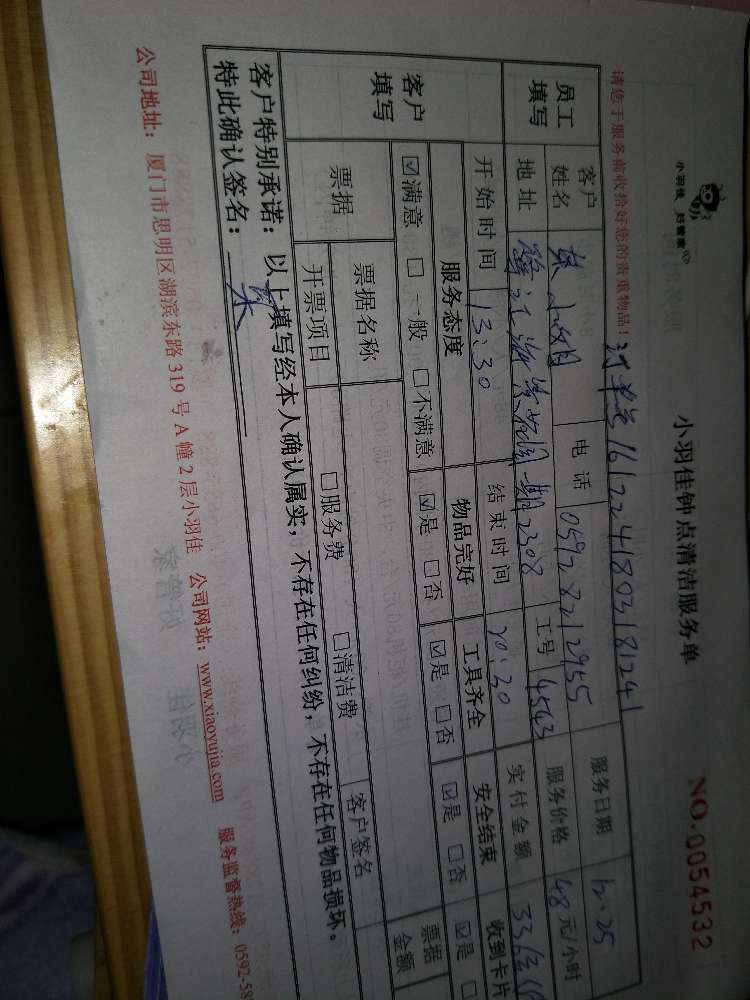 小羽佳 好管家
小羽佳钟点清洁服务单
NO.0054532
请您于服务前收拾好您的贵重物品！
订单号1612241803181241
员工填写
客户姓名
电话 0592 8212955
服务日期 12.25
地址
一期2308
工号 4543
服务价格 48元/小时
开始时间 13:30
结束时间 20:20
实付金额
客户填写
服务态度 物品完好 工具齐全 安全结束 收到卡片
☑满意 □一般 □不满意 ☑是 □否 ☑是 □否 ☑是 □否 ☑是
票据
票据名称 □服务费 □清洁费 客户签名 票据金额
开票项目
客户特别承诺：以上填写经本人确认属实，不存在任何纠纷，不存在任何物品损坏。
特此确认签名：
公司地址：厦门市思明区湖滨东路319号A幢2层小羽佳 公司网站：www.xiaoyujia.com 服务监督热线：0592-58